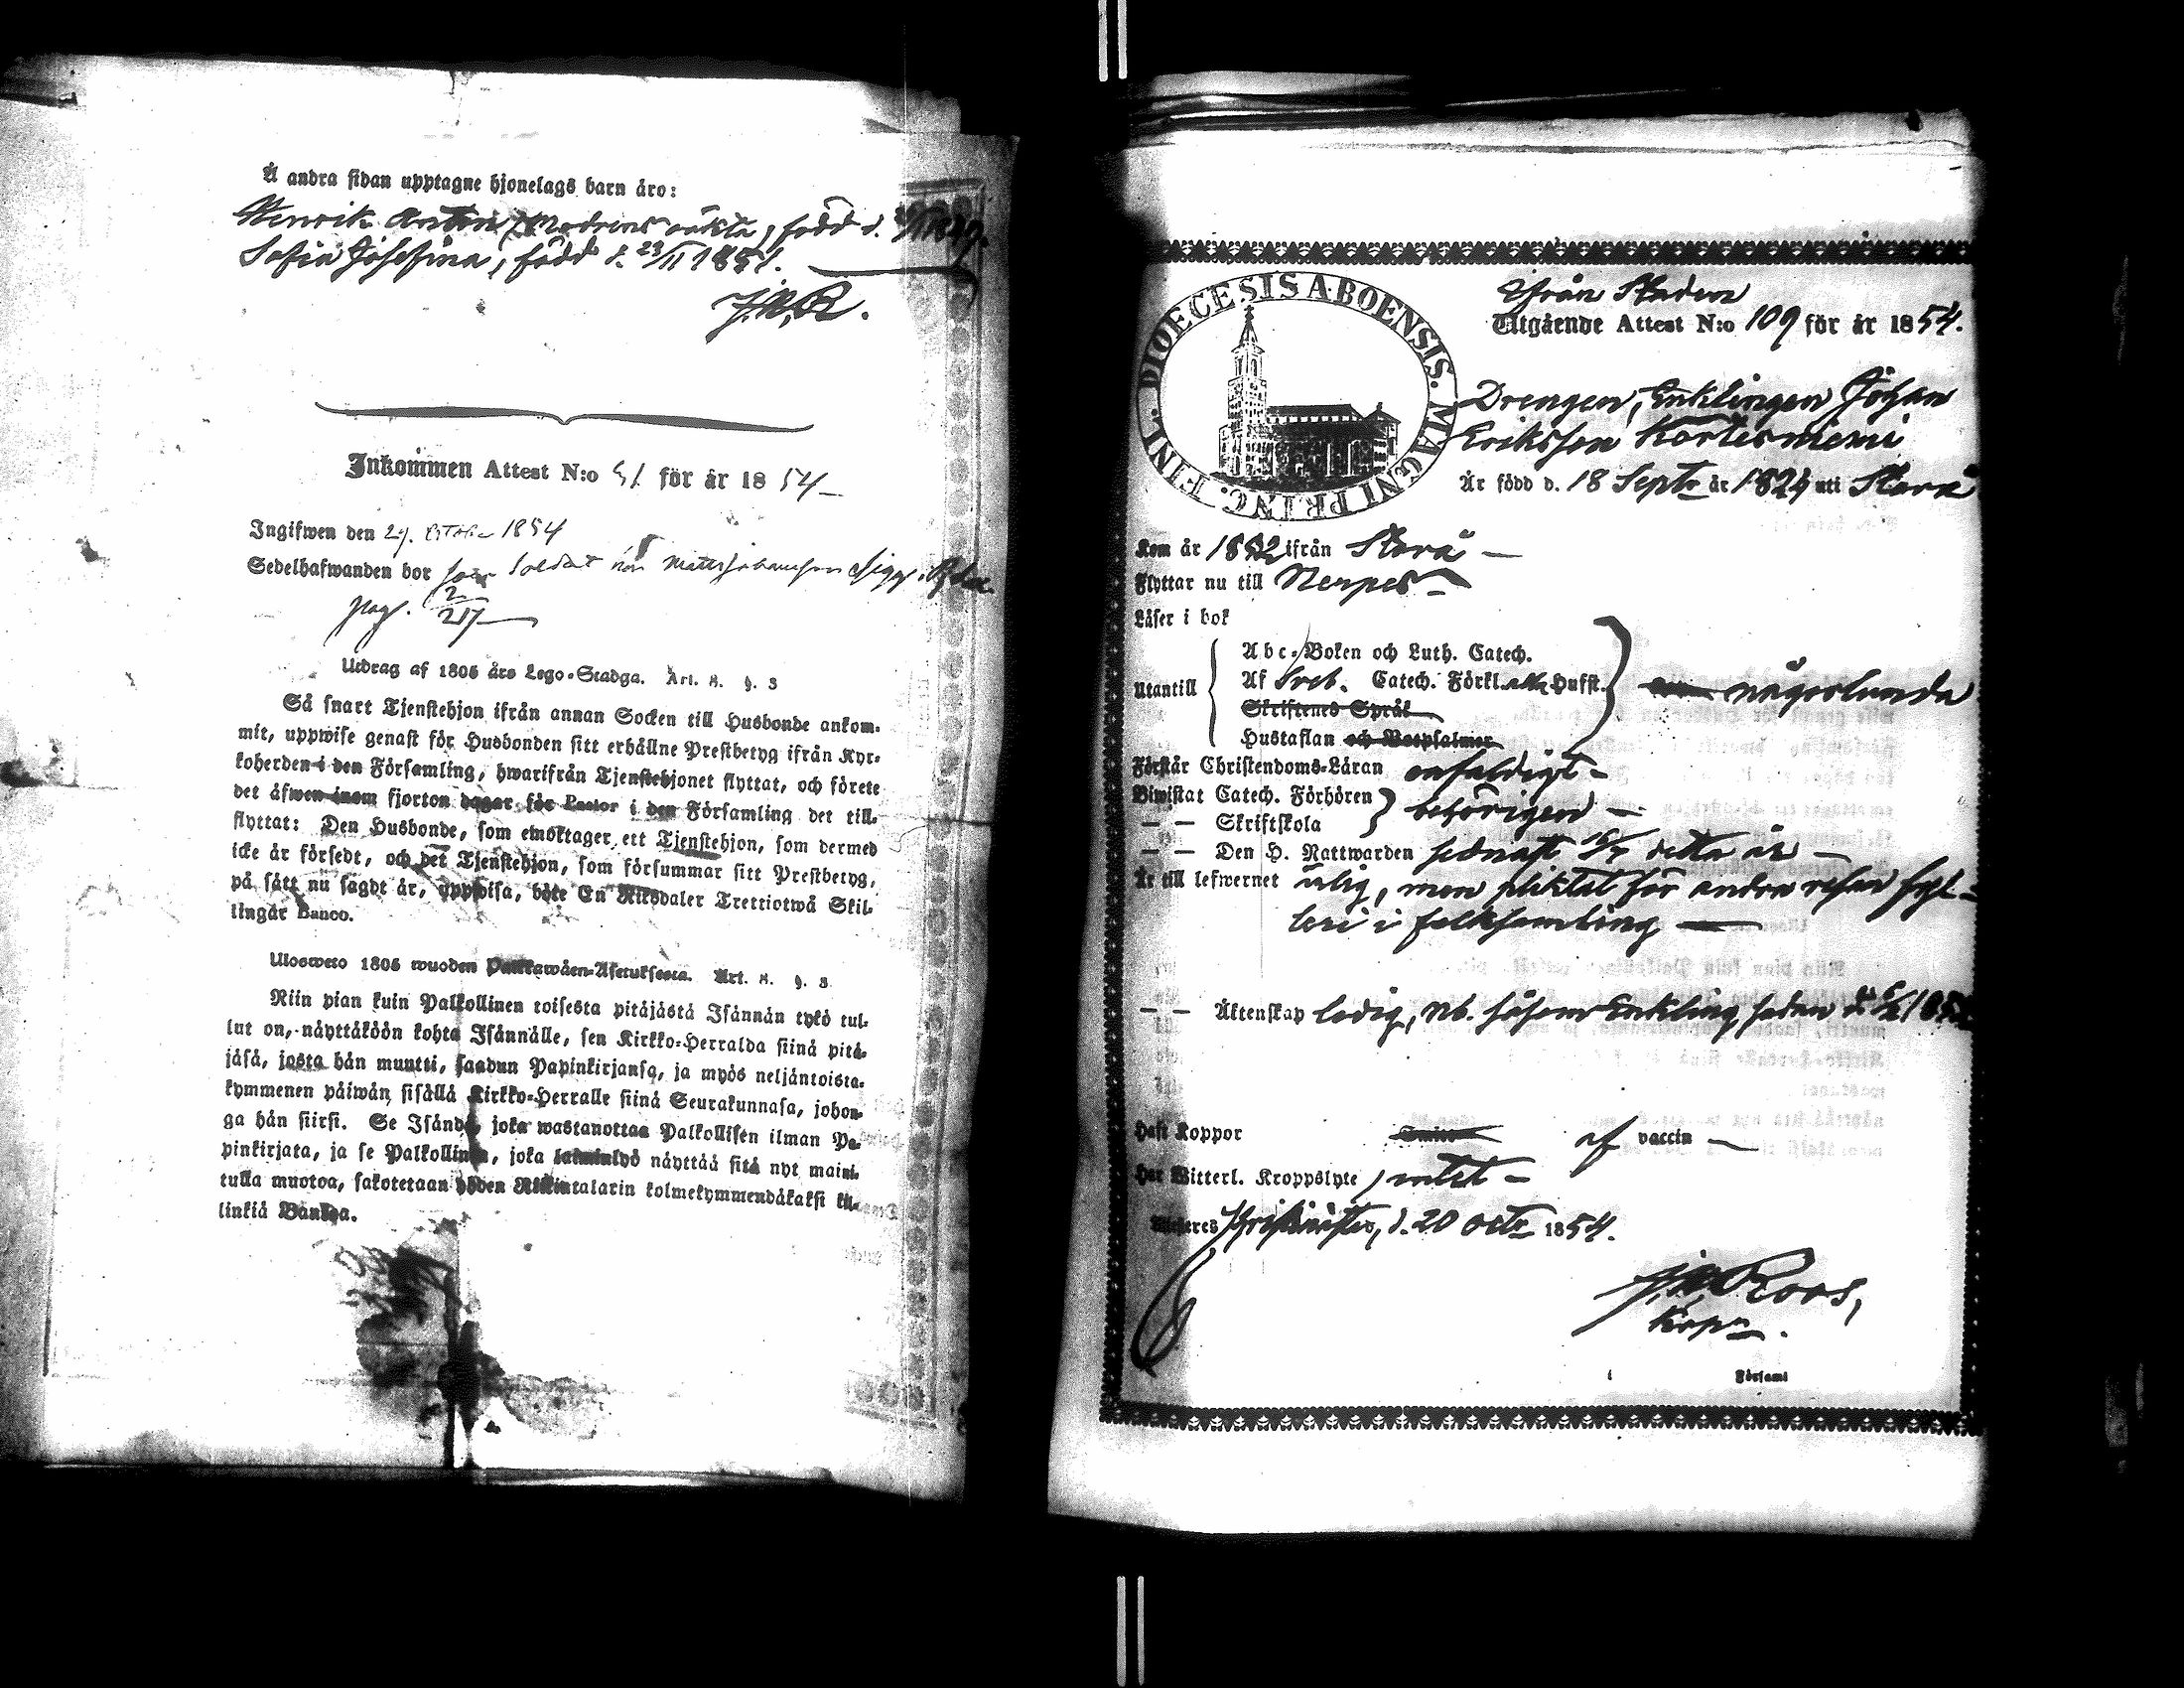 Å andra sidan upptagne hjonelags barn äro:
Henrik Anton, Modrens oäkta, född d.
Sofia Josefina, född d. 23/11 1851.
J.N.R.
Inkommen Attest N:o 51 för år 1854
Ingifwen den 29. October 1854
Sedelhafwanden bor hos Soldat Matts Johansson
pag. 2/217
Utdrag af 1805 års Lego-Stadga. Art. 8. §. 3
Så snart Tjenstehjon ifrån annan Socken till Husbonde ankom-
mit, uppwise genast för Husbonden sitt erhållne Prestbetyg ifrån Kyr-
koherden i den Församling, hwarifrån Tjenstehjonet flyttat, och förete
det äfwen inom fjorton dagar för Pastor i den Församling det till-
flyttat: Den Husbonde, som emottager ett Tjenstehjon, som dermed
icke är försedt, och det Tjenstehjon, som försummar sitt Prestbetyg,
på sätt nu sagdt är, uppwisa, böte En Riksdaler Trettiotwå Skil-
lingar Banco.
Ulosweto 1805 wuoden Palkkawäen-Asetuksesta. Art. 8. §. 3
Niin pian kuin Palkollinen toisesta pitäjästä Isännän tykö tul-
lut on, näyttäköön kohta Isännälle, sen Kirkko-Herralda siinä pitä-
jäsä, josta hän muutti, saadun Papinkirjansa, ja myös neljäntoista-
kymmenen päiwän sisällä Kirkko-Herralle siinä Seurakunnasa, johon-
ga hän siirsi. Se Isändä, joka wastanottaa Palkollisen ilman Pa-
pinkirjata, ja se Palkollinen, joka laiminlyö näyttää sitä nyt maini-
tulla muotoa, sakotetaan yhden Riikintalarin kolmekymmendäkaksi kil-
linkiä Bankoa.
DIOECESIS ABOENSIS. MAGNI PRINC. FINL.
Ifrån Staden
Utgående Attest N:o 109 för år 1854.
Drengen, Enklingen Johan
Eriksson Kortesniemi
Är född d. 18 Septr år 1824 uti Storå
Kom år 1852 ifrån Storå
Flyttar nu till Nerpes
Läser i bok
Utantill
Abc-Boken och Luth. Catech.
Af Sveb. Catech. Förkl. alla Hufst.
Skriftenes Språk
Hustaflan och Botpsalmer
någorlunda
Förstår Christendoms-Läran enfaldigt
Biwistat Catech. Förhören
— — Skriftskola
behörigen
— — Den H. Nattwarden sednast 16/7 detta år
Är till lefwernet ärlig, men pliktat för andra resan fyl-
leri i folksamling
— — Äktenskap ledig, Nb. såsom Enkling sedan d.
Haft Koppor af vaccin
Har Witterl. Kroppslyte, intet
Attesteres Christinestad, d. 20 Octr 1854.
J.N. Roos,
Kpn.
i Församl